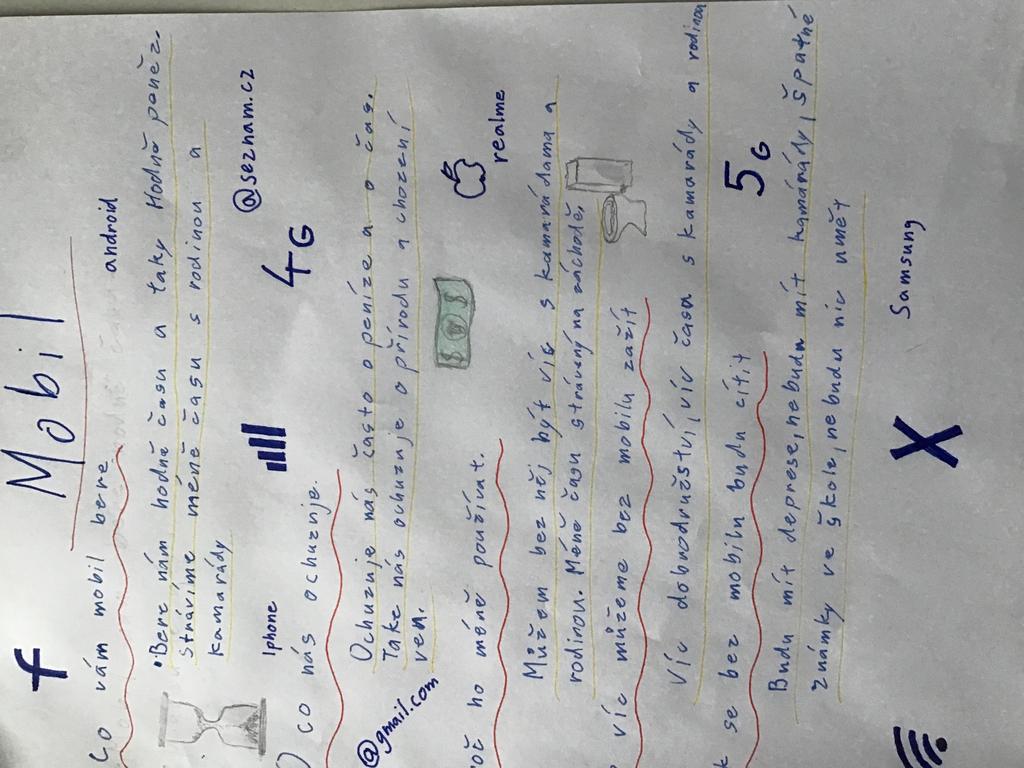 f Mobil
co vám mobil bere
android
•Bere nám hodně času a taky Hodně peněz.
strávíme méně času s rodinou a
kamarády
Iphone
4G
@seznam.cz
) co nás ochuzuje.
Ochuzuje nás často o peníze a o čas.
Take nás ochuzuje o přírodu a chození
ven.
@gmail.com
realme
oč ho méně používat.
Můžem bez něj být víc s kamarádama a
rodinou. Méně času strávený na záchodě.
víc můžeme bez mobilu zažít
Víc dobrodružství, víc času s kamarády a rodinou
5G
k se bez mobilu budu cítit
Budu mít deprese, nebudu mít kamárády, špatné
známky ve škole, nebudu nic umět
X
Samsung